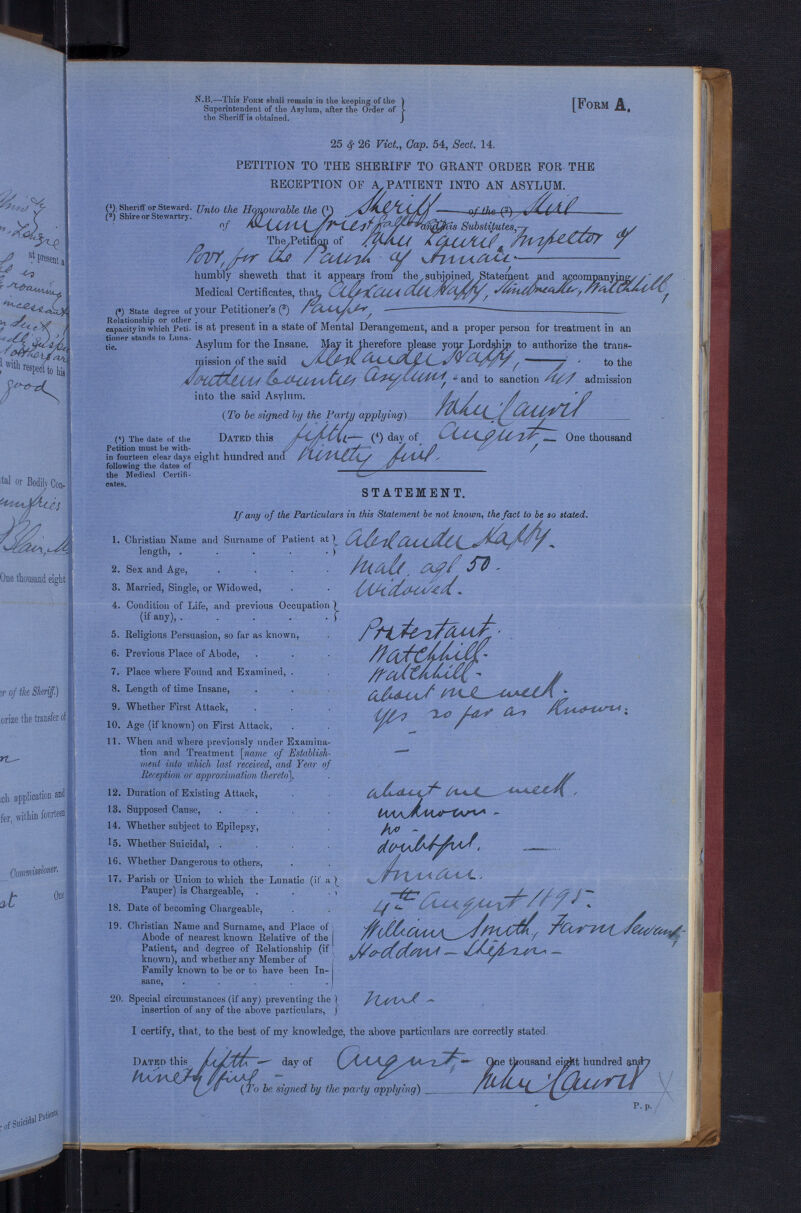 N.B.—This Form shall remain in the keeping of the
Superintendent of the Asylum, after the Order of
the Sheriff is obtained.
[Form A.
25 & 26 Vict., Cap. 54, Sect. 14.
PETITION TO THE SHERIFF TO GRANT ORDER FOR THE
RECEPTION OF A PATIENT INTO AN ASYLUM.
(¹) Sheriff or Steward.
(²) Shire or Stewartry.
Unto the Honourable the (¹) Sheriff — of the (²) Shire
of Dumfries & Galloway and his Substitutes,
The Petition of John Laurie, Inspector of
Poor, for the Parish of Annan —
humbly sheweth that it appears from the subjoined Statement and accompanying
Medical Certificates, that Alexander Haffy, Stonebreaker, Watchhill,
(³) State degree of
Relationship or other
capacity in which Peti-
tioner stands to Luna-
tic.
your Petitioner's (³) Pauper, —
is at present in a state of Mental Derangement, and a proper person for treatment in an
Asylum for the Insane. May it therefore please your Lordship to authorize the trans-
mission of the said Alexander Haffy, — to the
Southern Counties Asylum, and to sanction his admission
into the said Asylum.
(To be signed by the Party applying) John Laurie
(⁴) The date of the
Petition must be with-
in fourteen clear days
following the dates of
the Medical Certifi-
cates.
Dated this fifth — (⁴) day of August, — One thousand
eight hundred and ninety five.
STATEMENT.
If any of the Particulars in this Statement be not known, the fact to be so stated.
1. Christian Name and Surname of Patient at
length, . Alexander Haffy.
2. Sex and Age, Male. age 50.
3. Married, Single, or Widowed, Widowed.
4. Condition of Life, and previous Occupation
(if any), .
5. Religious Persuasion, so far as known, Protestant.
6. Previous Place of Abode, Watchhill.
7. Place where Found and Examined, . Watchhill.
8. Length of time Insane, about one week.
9. Whether First Attack, Yes so far as known.
10. Age (if known) on First Attack, —
11. When and where previously under Examina-
tion and Treatment [name of Establish-
ment into which last received, and Year of
Reception or approximation thereto], —
12. Duration of Existing Attack, about one week.
13. Supposed Cause, unknown -
14. Whether subject to Epilepsy, no -
15. Whether Suicidal, . doubtful. —
16. Whether Dangerous to others,
17. Parish or Union to which the Lunatic (if a
Pauper) is Chargeable, . Annan.
18. Date of becoming Chargeable, 4th August 1895.
19. Christian Name and Surname, and Place of
Abode of nearest known Relative of the
Patient, and degree of Relationship (if
known), and whether any Member of
Family known to be or to have been In-
sane,
William Smith, Farm Servant,
Hoddom - Stepson -
20. Special circumstances (if any) preventing the
insertion of any of the above particulars, None -
I certify, that, to the best of my knowledge, the above particulars are correctly stated.
Dated this fifth — day of August, — One thousand eight hundred and
ninety five —
(To be signed by the party applying) John Laurie
P. p.
st present a
is
roaming
incessant
with respect to his
good
tal or Bodily Con-
umfries
Blair, M
One thousand eight
er of the Sheriff.)
orize the transfer of
ch application and
fer, within fourteen
Commissioner.
One
r of Suicidal Patients